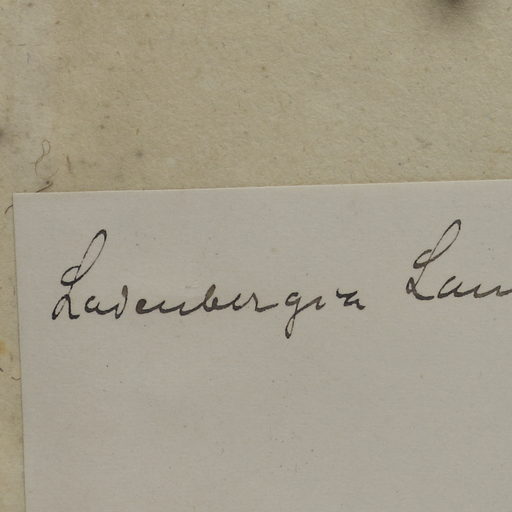 Ladenbergia Lam